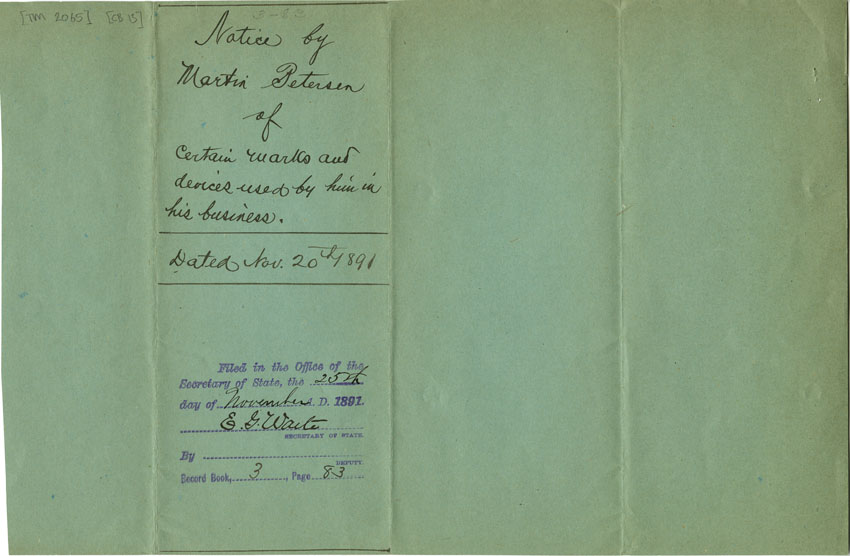 [TM 2065] [CB 15]
3-83
Notice by
Martin Petersen
of
certain marks and
devices used by him in
his business.
Dated Nov. 20th 1891
Filed in the Office of the
Secretary of State, the 25th
day of November A. D. 1891.
E. G. Waite
SECRETARY OF STATE.
By
DEPUTY.
Record Book, 3, Page 83